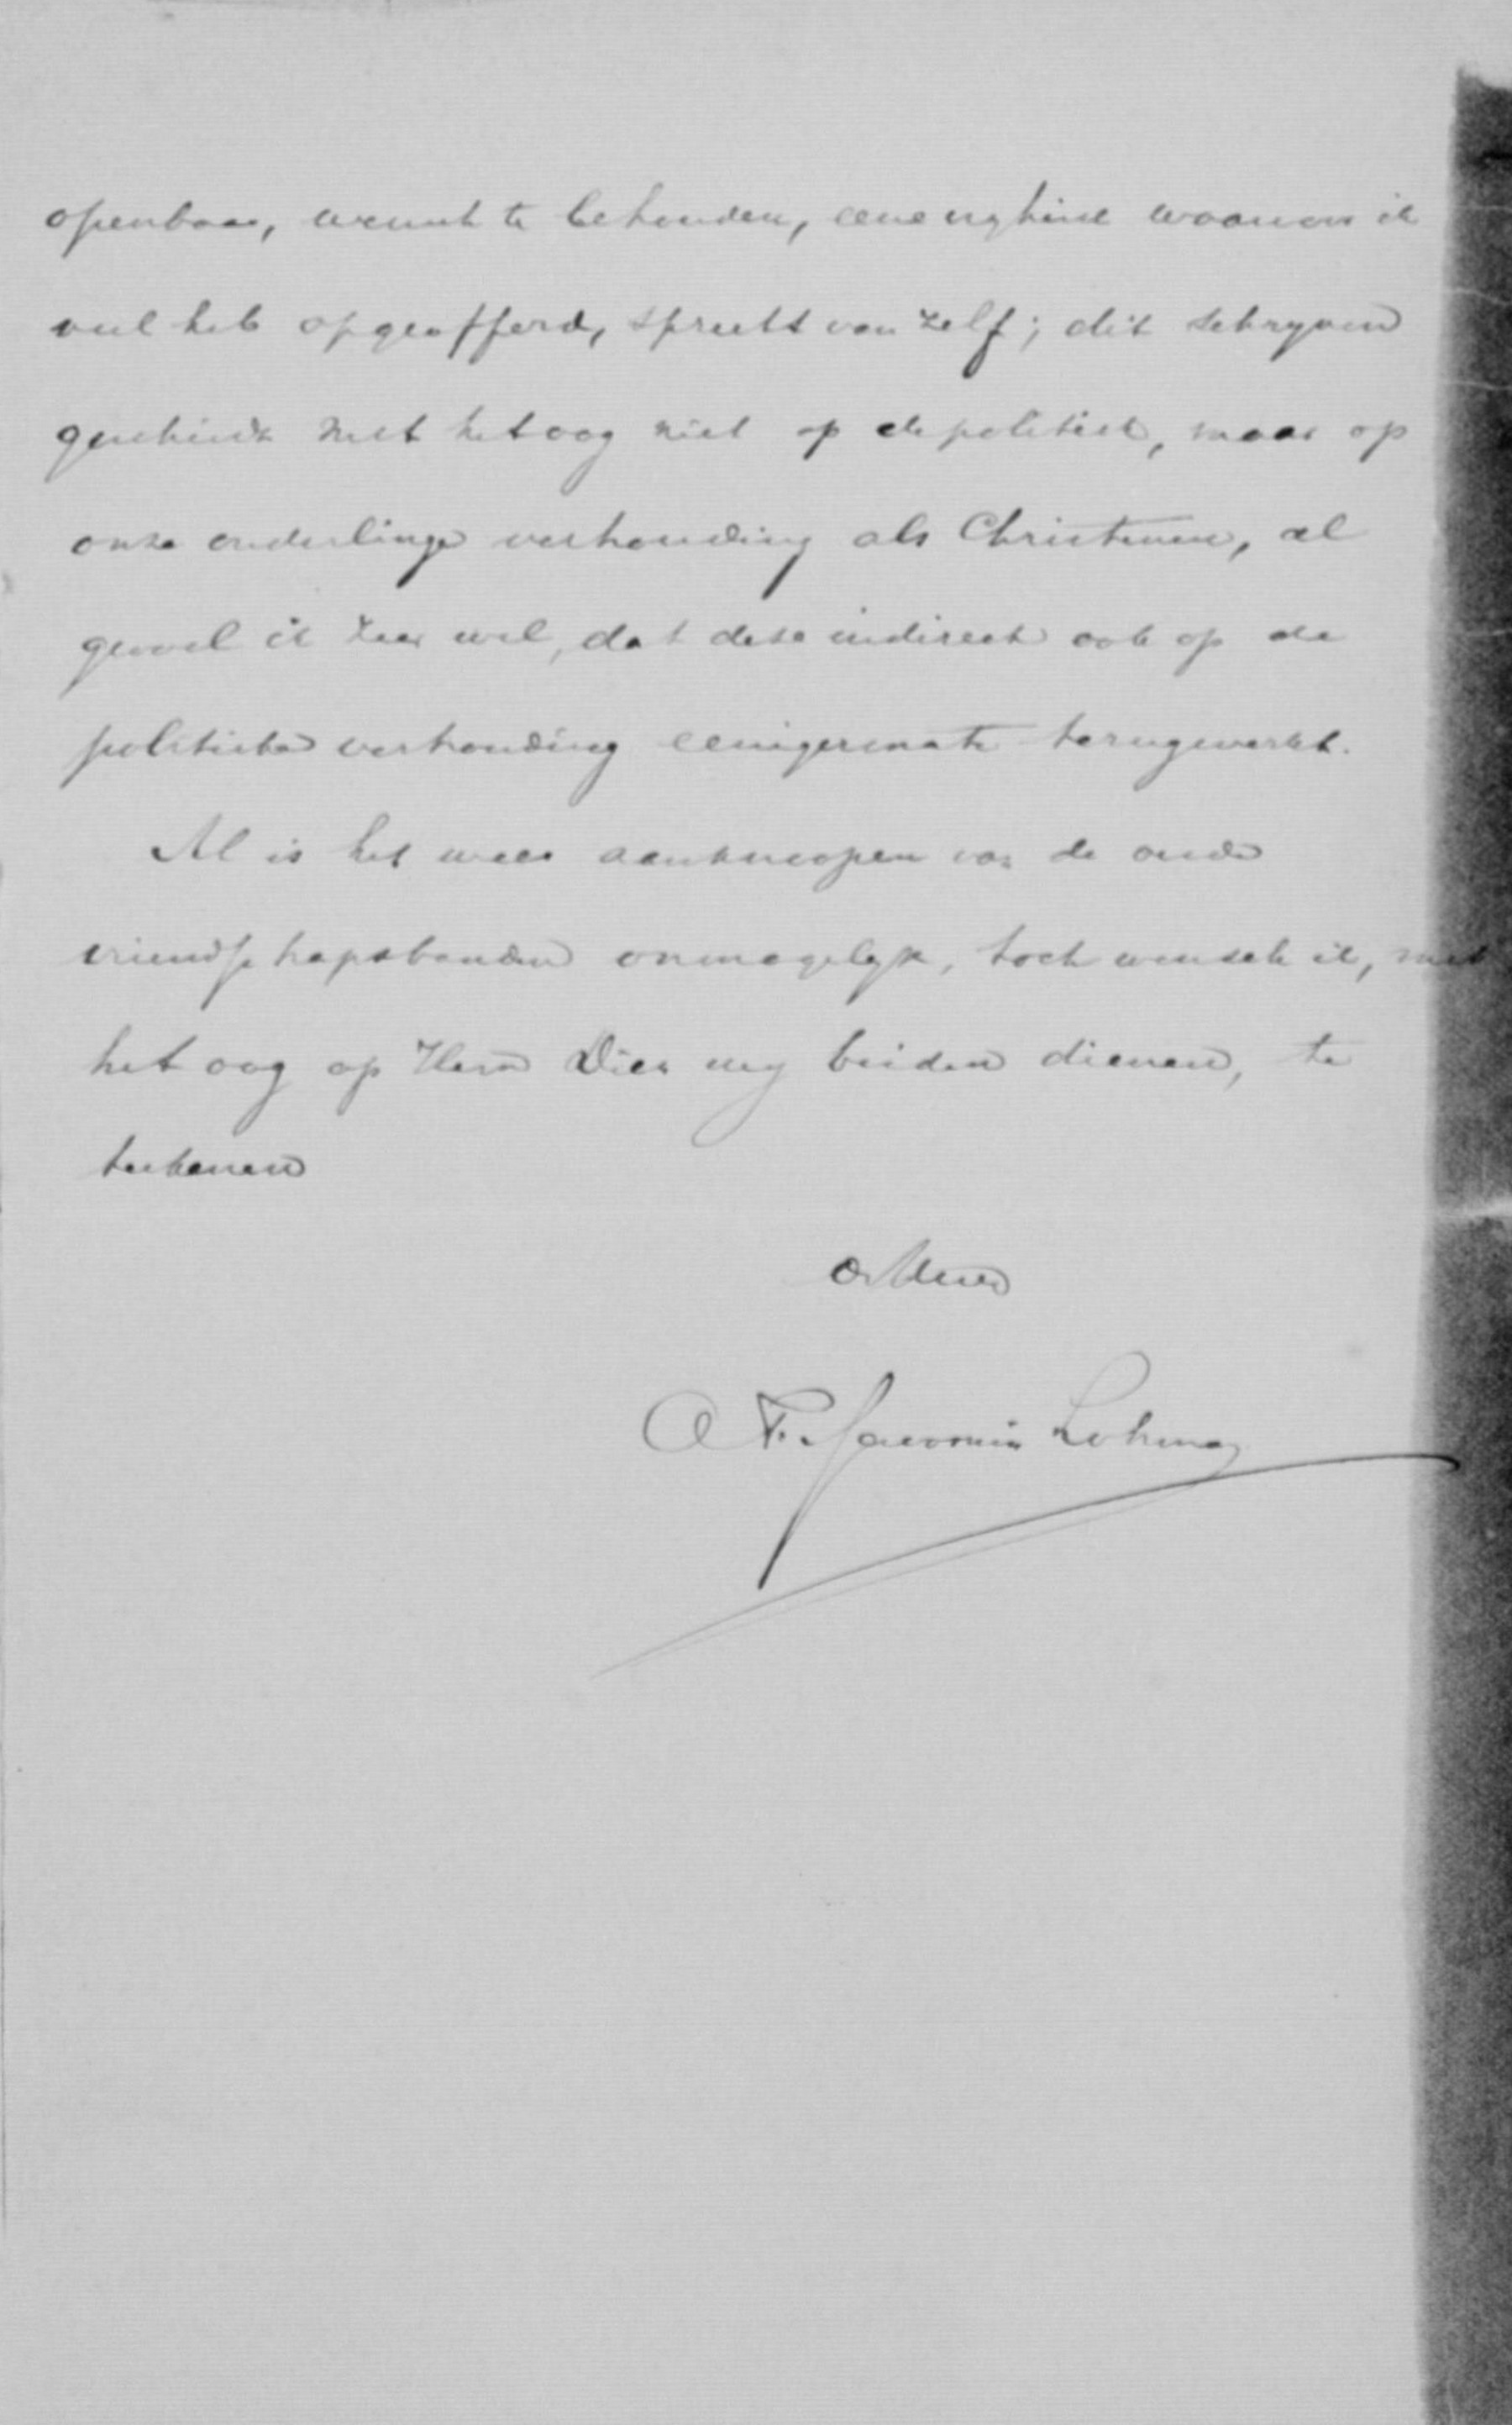 openbaar, wensch te behouden, eene vryheid waarvoor ik
veel heb opgeofferd, spreekt van zelf; dit schryven
geschiedt met het oog niet op de politiek, maar op
onze onderlinge verhouding als Christenen, al
gevoel ik zeer wel, dat deze indirect ook op de
politieke verhouding eenigermate terugwerkt.
Al is het weer aanknoopen van de oude
vriendschapsbanden onmogelyk, toch wensch ik, met
het oog op Hem Dien wy beiden dienen, te
teekenen
A F. Savornin Lohman